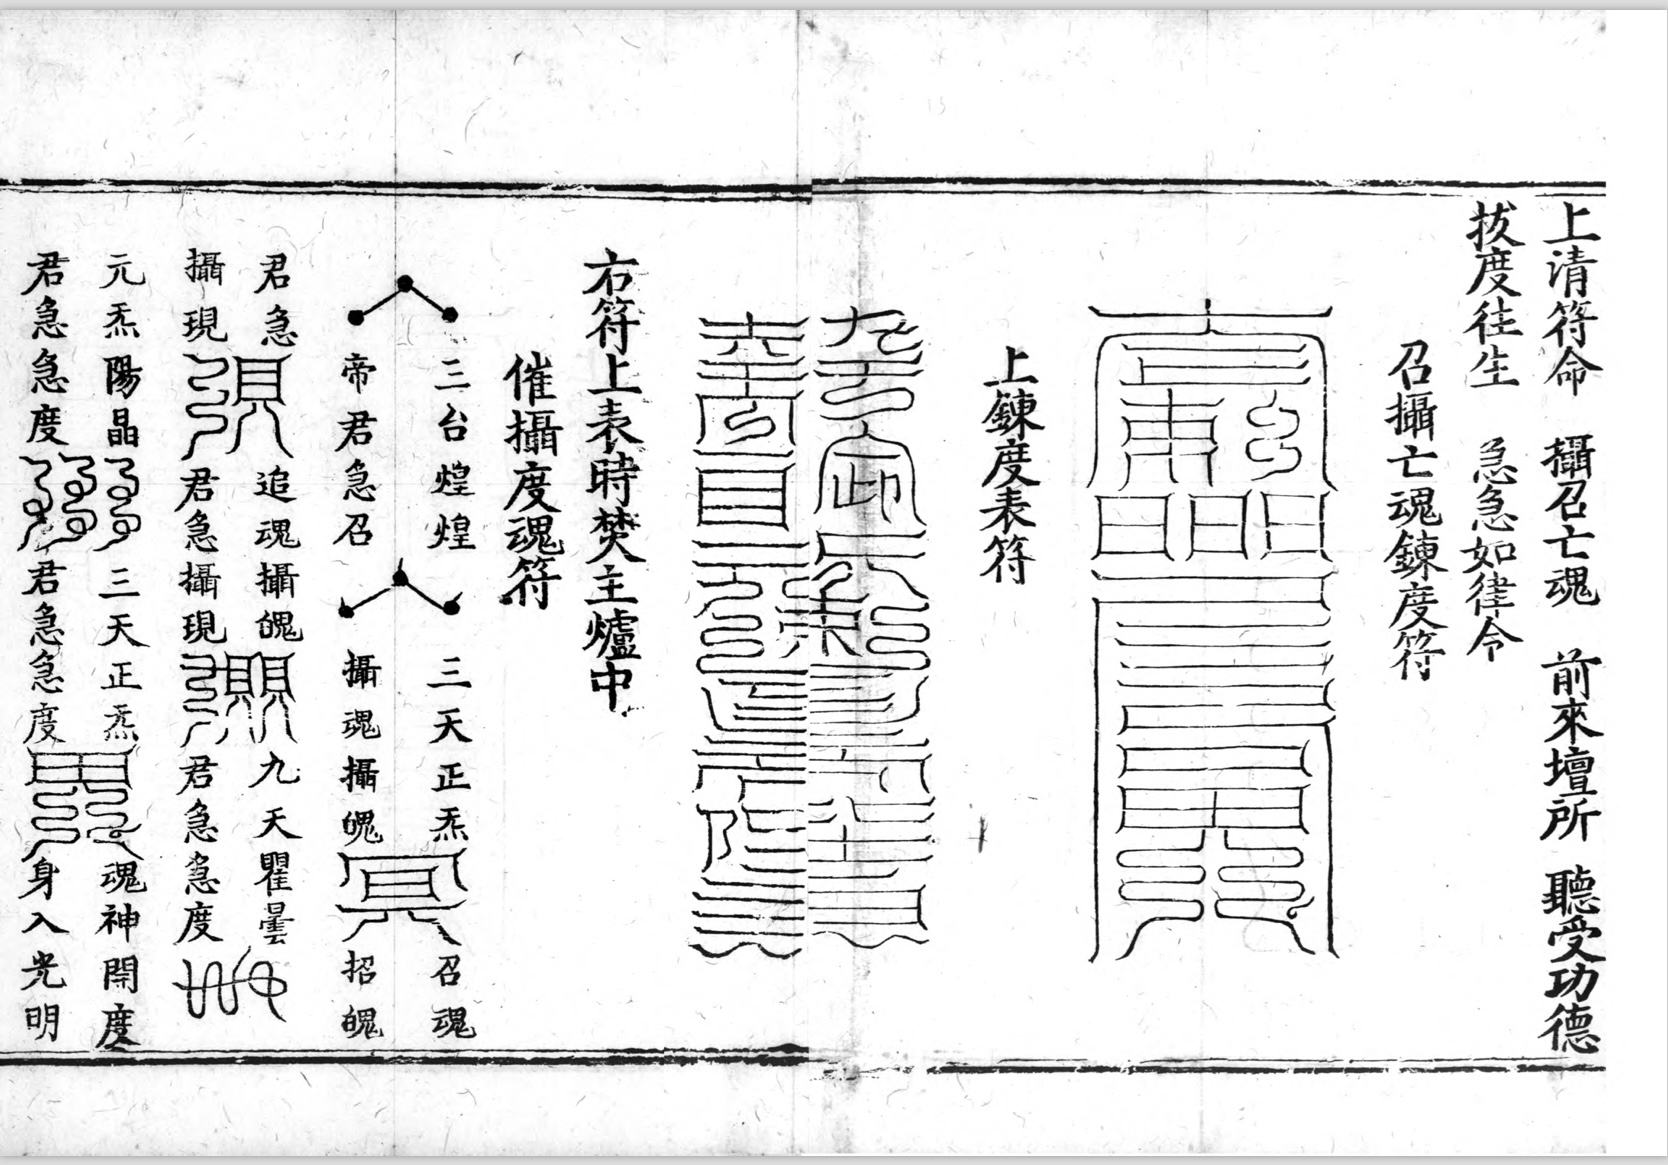 上清符命　攝召亡魂　前來壇所　聽受功德
拔度往生　急急如律令
召攝亡魂鍊度符
上鍊度表符
右符上表時焚主爐中
催攝度魂符
三台煌煌　三天正炁　召魂
帝君急召　攝魂攝魄　招魄
君急　追魂攝魄　九天瞿曇
攝現　君急攝現　君急急度
元炁陽晶　三天正炁　魂神開度
君急急度　君急急度　身入光明